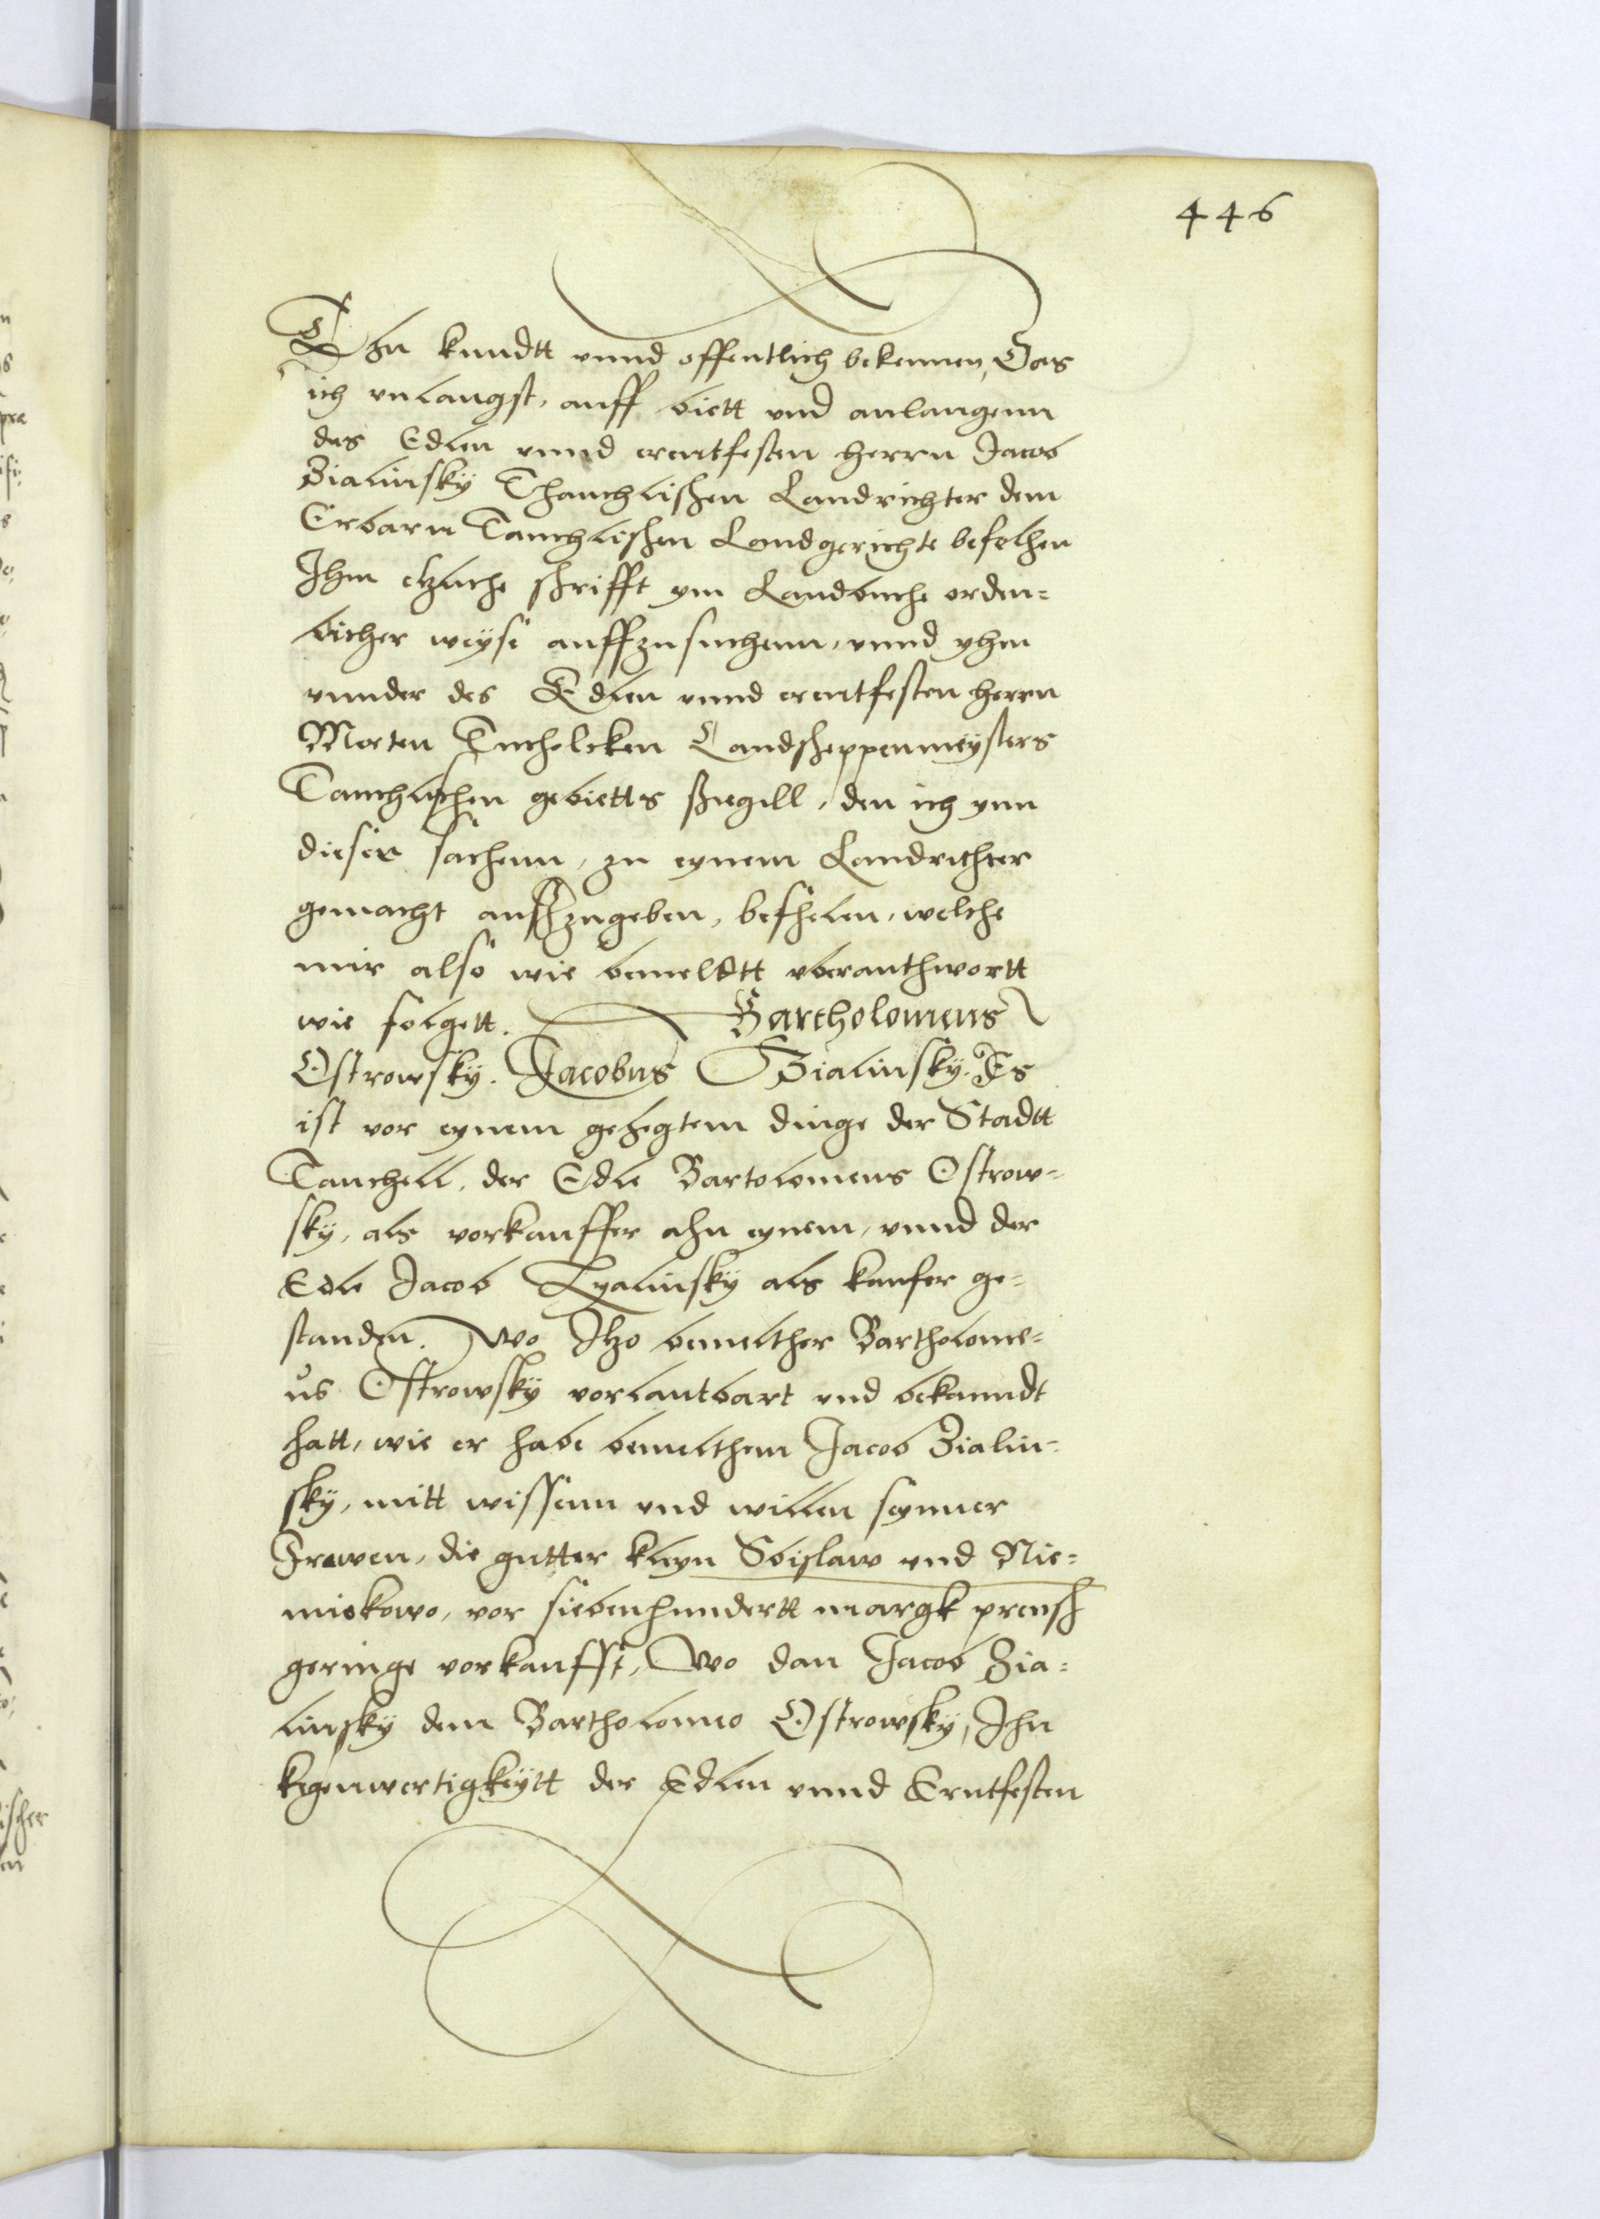 446
Thu kundtt vnnd offentlich bekennen, Das
ich vnlangst, auff biett vnd anlangenn
des Edlen vnnd erentfesten herrn Jacob
Zialinsky Thauchlischen Landrichter dem
Erbarn Tauchlischen Landgerichte befelhen
Jhm etzliche schrifft ym Landbuche orden=
licher weyse auffzusuchenn, vnnd yhm
vnnder des Edlen vnnd erentfesten herrn
Merten Tucholcken Landscheppenmeysters
Tauchlischen gebietts siegill, den ich ynn
dieser sachenn, zu eynem Landrichter
gemacht ausszugeben, befhelen, welche
mir also wie bemeldtt vberanthwortt
wie folgett. Bartholomeus
Ostrowsky. Jacobus Zialinsky. Es
ist vor eynem gehegtem dinge der Stadtt
Tauchell, der Edle Bartolomeus Ostrow=
sky, als vorkauffer ahn eynem, vnnd der
Edle Jacob Zyalinsky als kaufer ge=
standen. Wo Jtzo bemelther Bartholome=
us Ostrowsky vorlautbart vnd bekanndt
hatt, wie er habe bemelthem Jacob Zialin=
sky, mitt wissenn vnd willen seynner
Frawen, die gutter kleyn Sbislaw vnd Nie=
miekowo, vor siebenhundertt margk preusch
geringe vorkaufft, Wo dan Jacob Zia=
linsky dem Bartholomeo Ostrowsky, Jhn
kegenwertigkeytt der Edlen vnnd Erntfesten